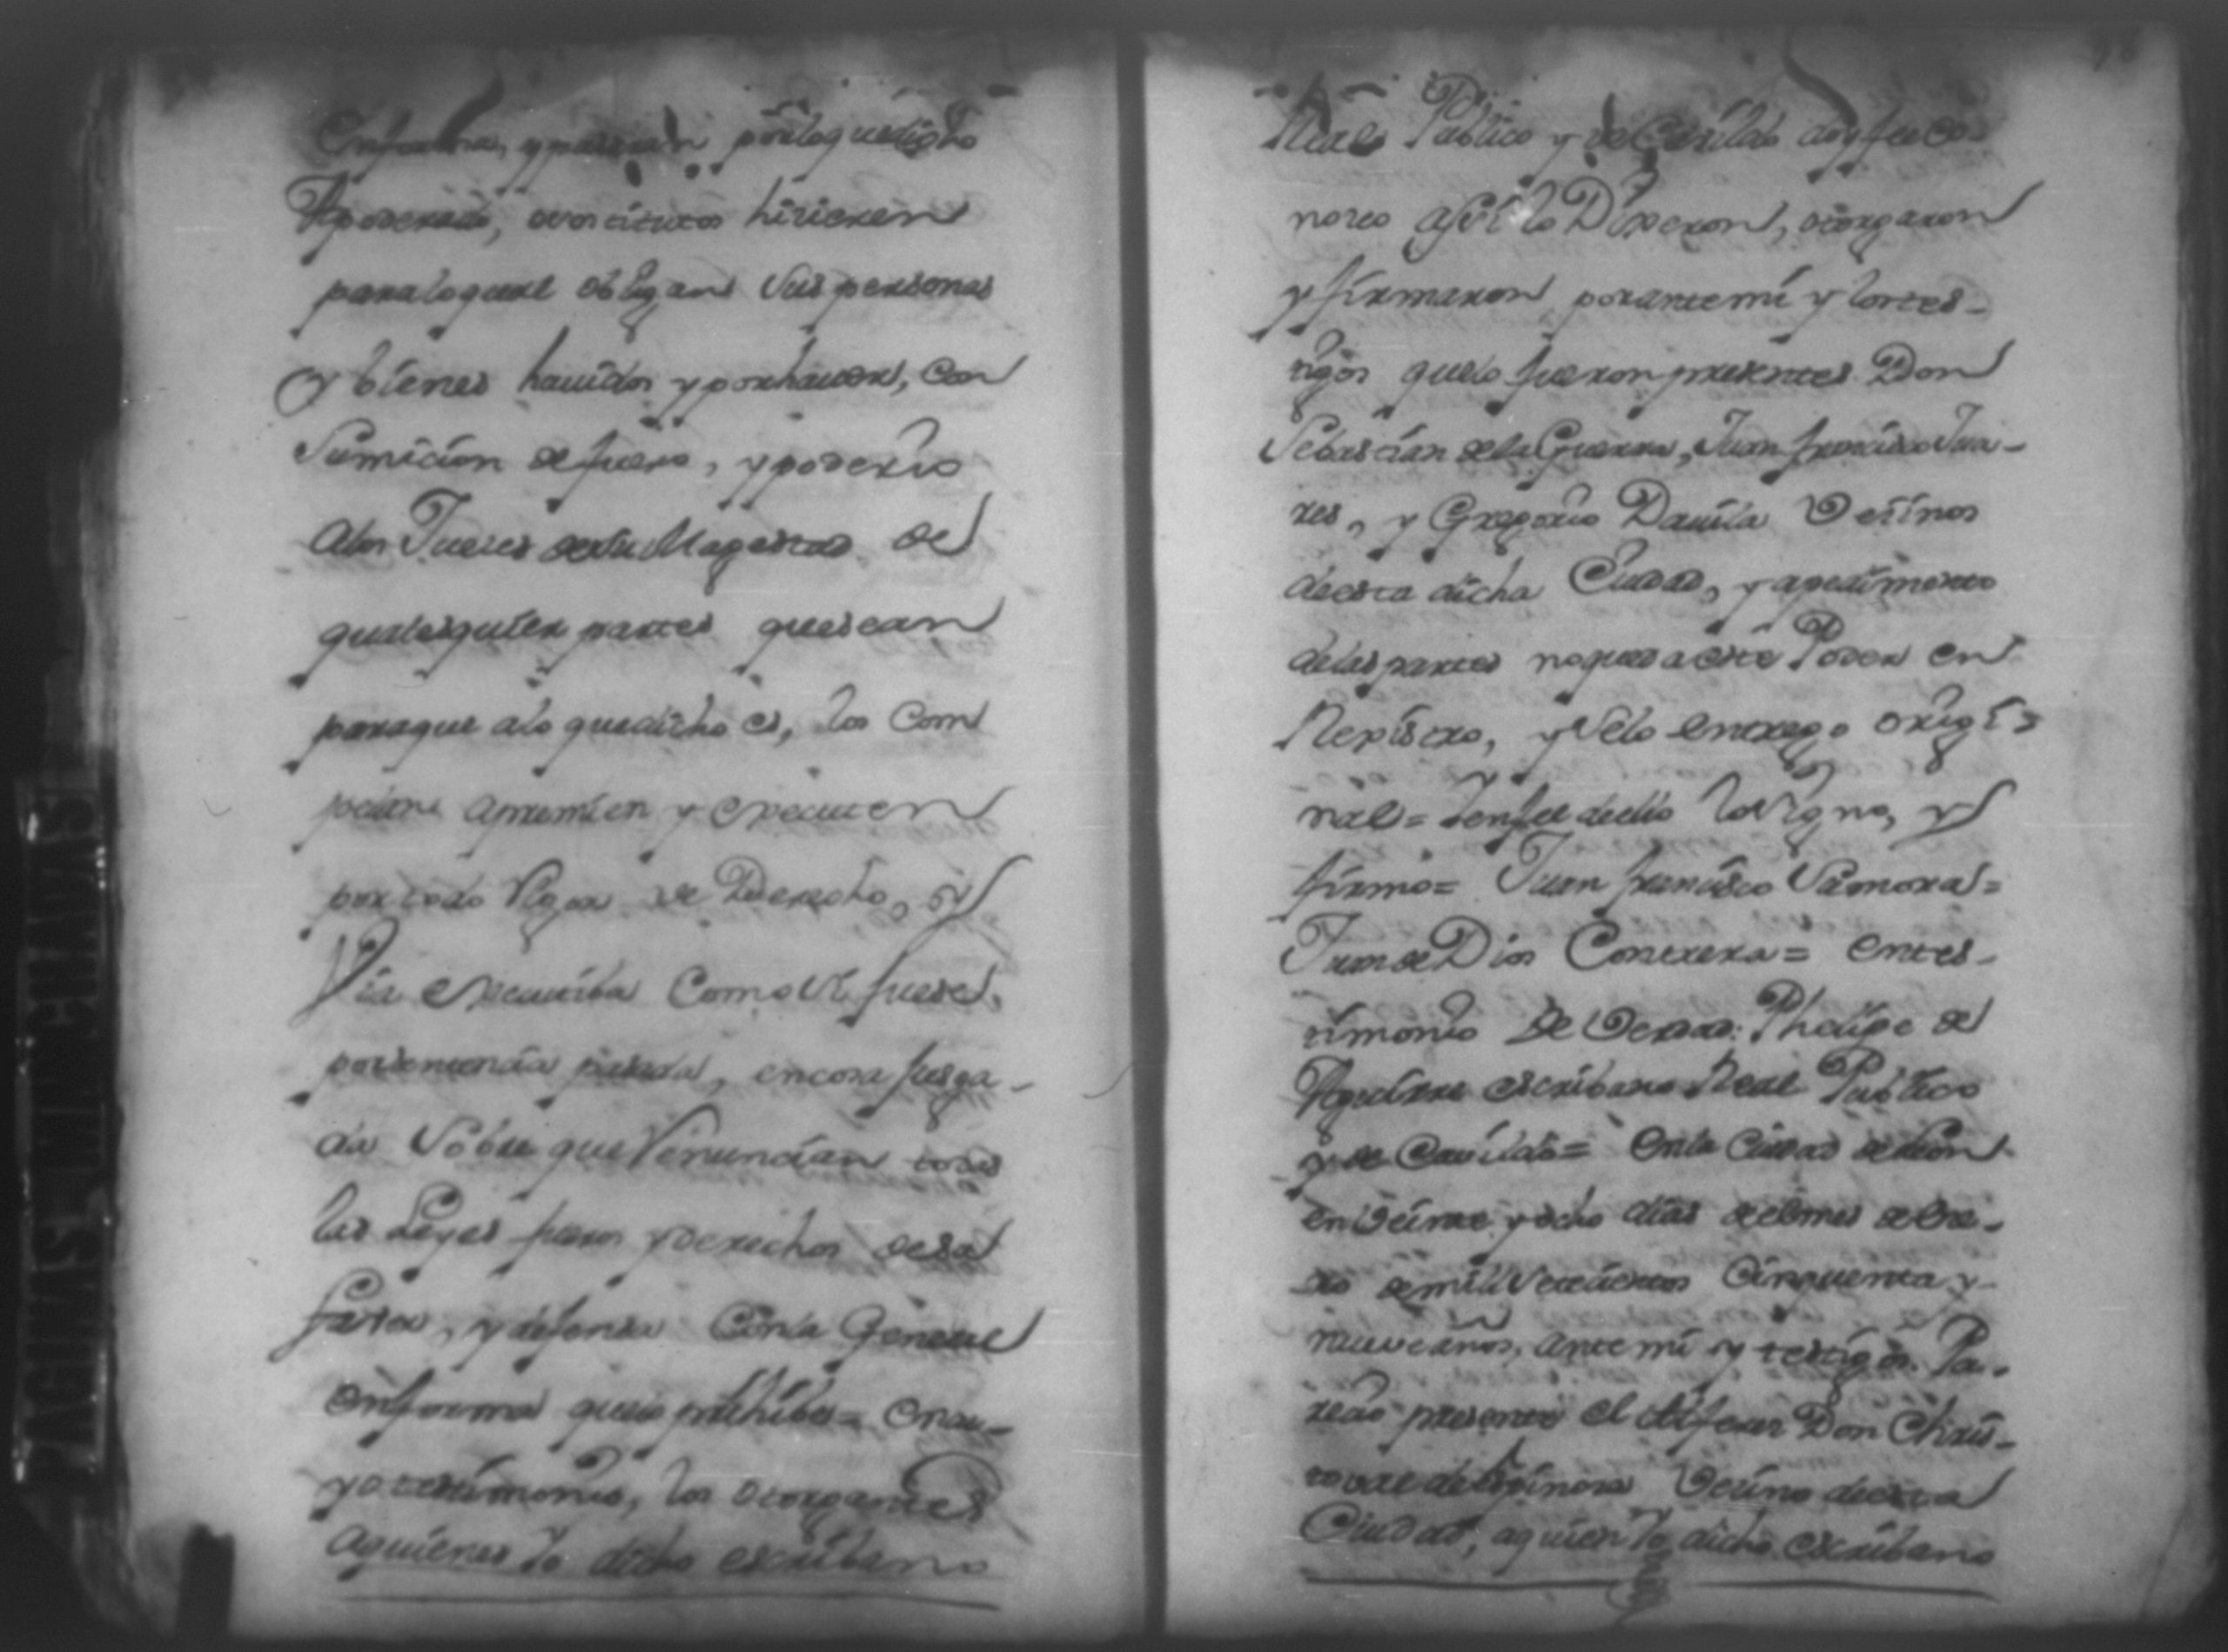 Enforma, y pasaran porloquedicho
Apoderado, osostitutos hisieren
paraloqual obligan sus personas
y bienes hauidos y porhauer, con
Sumicion defuero, y poderio
Alos Jueses desu Magestad de
qualesquier partes quesean
paraque alo quedicho es, los com
pelan apremien y executen
portodo Rigor de Derecho, y
Via executiba como si fuese
porsentencia pasada, encosa jusga-
da sobre que renuncian todas
las Leyes fueros y derechos desu
fabor, y defensa Conla General
enforma quelo prohibe= encu-
yo testimonio, los otorgantes
aquienes Yo dicho escribano
Real Publico y de Cavildo doy fee co-
nosco assi lo Dixeron, otorgaron
y firmaron porantemi y lostes-
tigos quelo fueron presentes Don
Sebastian dela Guerra, Juan francisco Jua-
res, y Gregorio Dauila Vesinos
deesta dicha Ciudad, y apedimento
delaspartes noqueda este Poder en
Rexistro, y selo entrego origi=
nal= Yenfee deello losigno, y
firmo= Juan francisco Samora=
Juan de Dios Contrera= entes-
timonio de Verdad: Phelipe de
Aguirre escribano Real Publico
y de Cavildo= enla Ciudad de leon
en Veinte y ocho dias delmes de
de mill Setecientos Cinquenta y
nueve años, ante mi y testigos. Pa-
recio presente el Alferes Don Chris-
toval deEspinosa Vecino deesta
Ciudad, aquien Yo dicho escribano